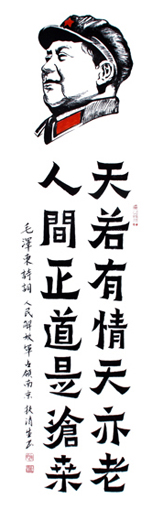 天若有情天亦老
人間正道是滄桒
毛澤東詩詞人民解放軍占領南京